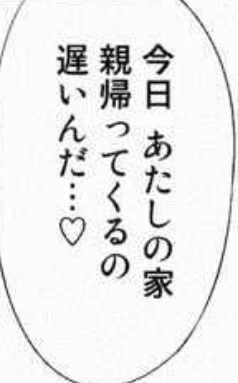 今日 あたしの家
親帰ってくるの
遅いんだ…♡